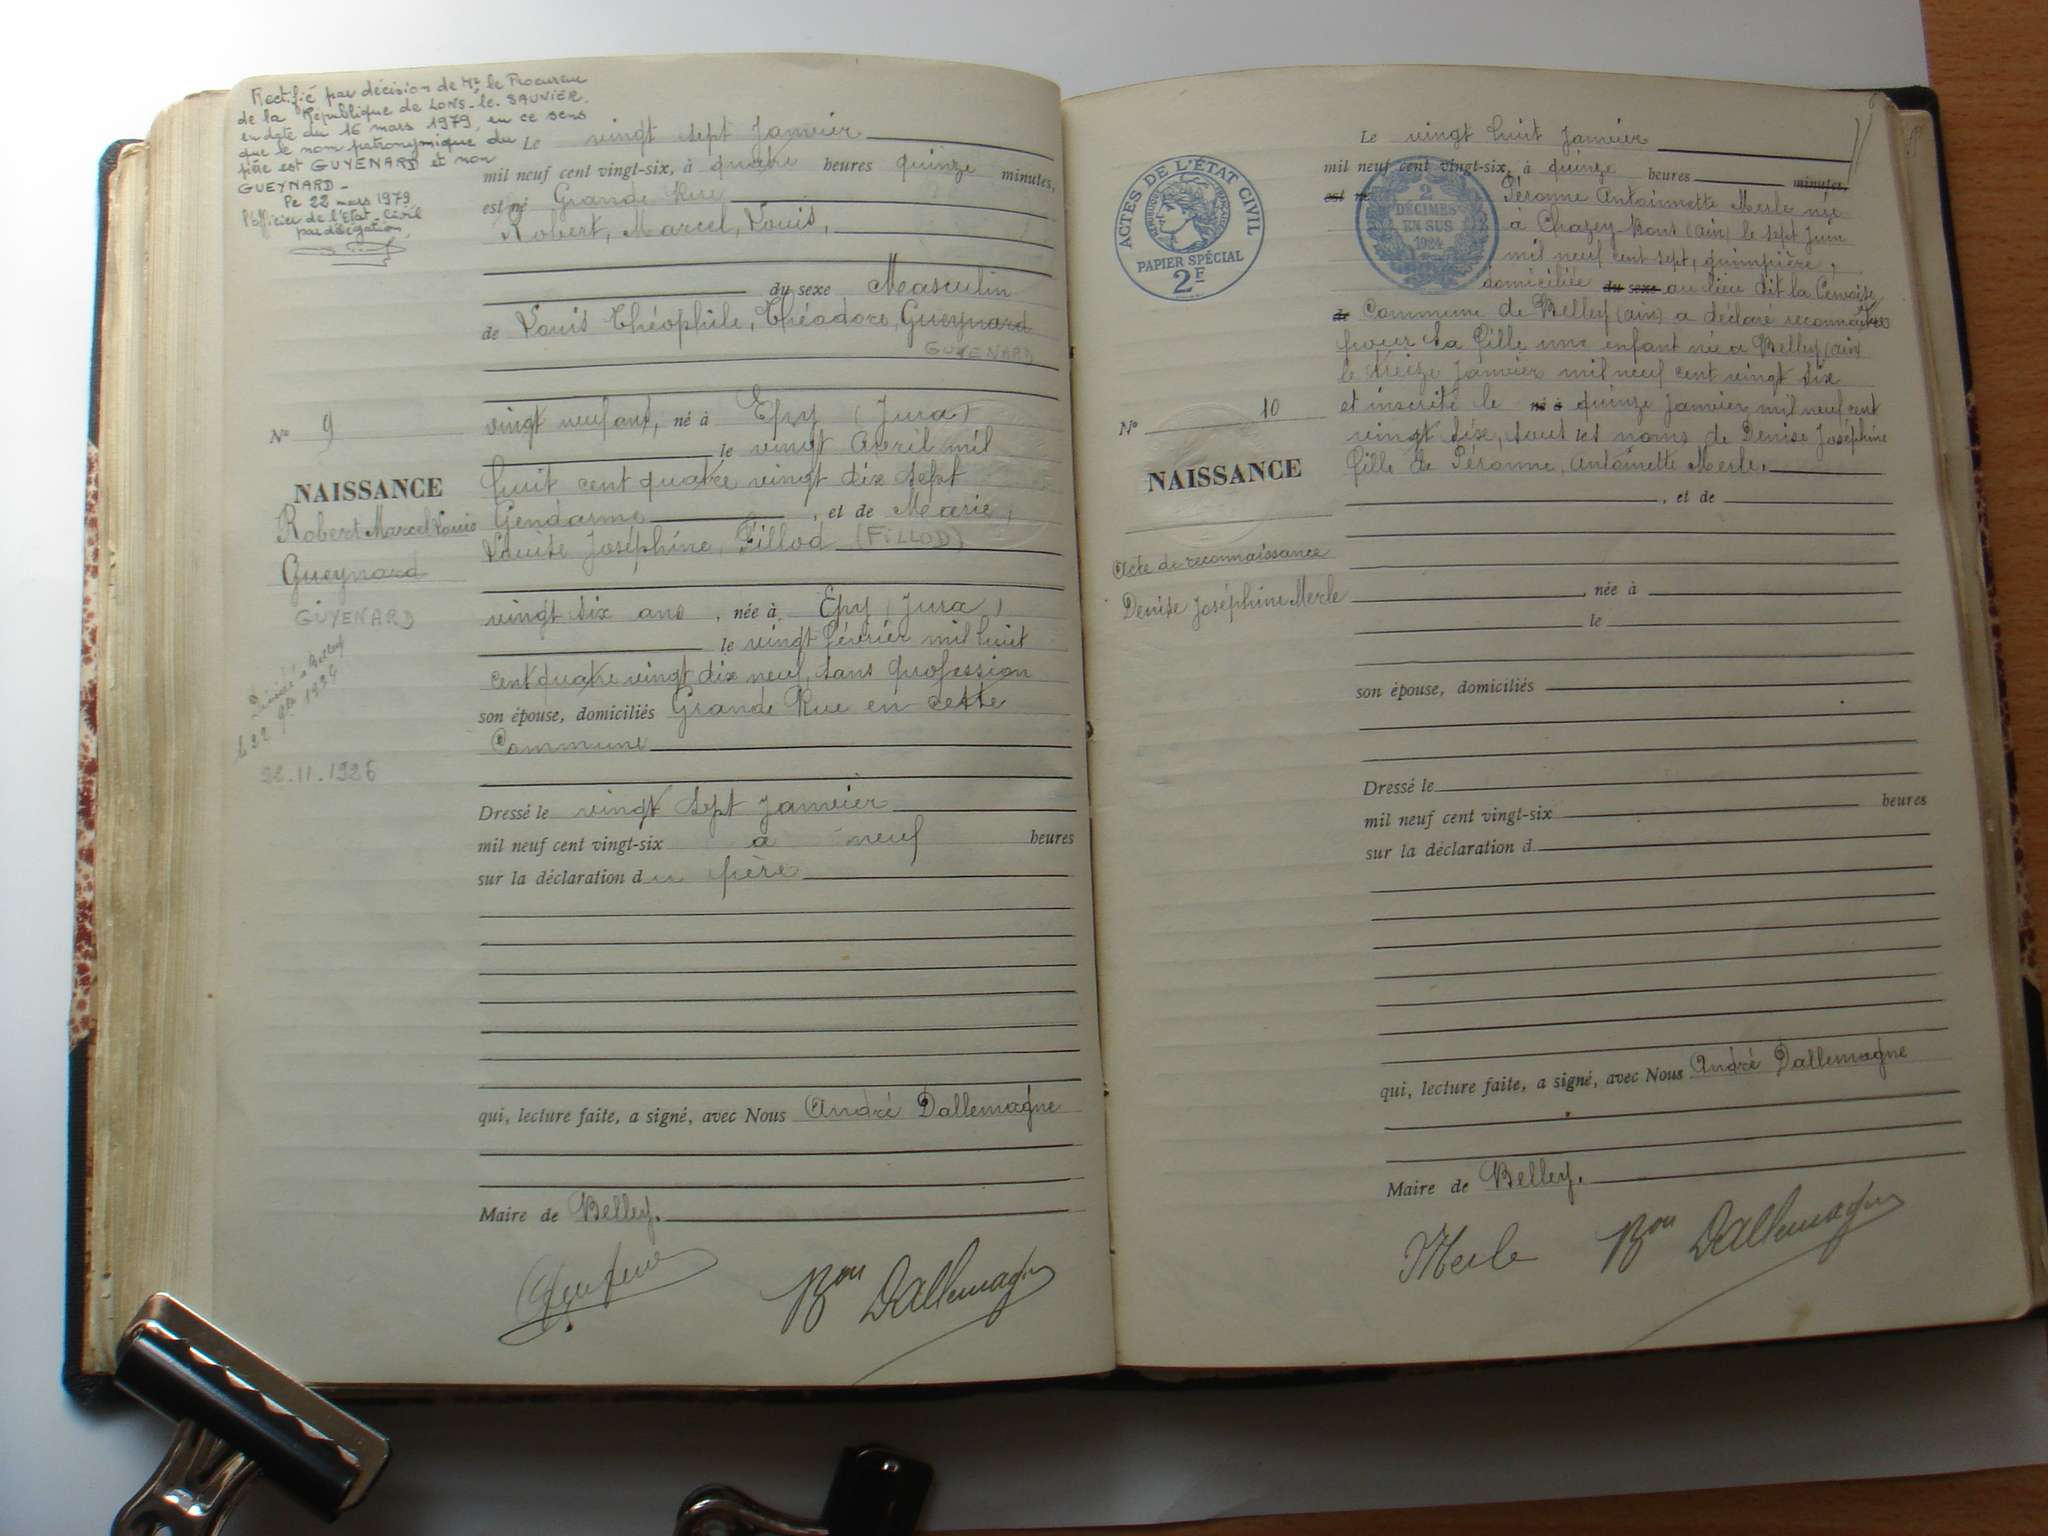 Rectifié par décision de Mr le Procureur
de la République de LONS-le-SAUNIER
en date du 16 mars 1979, en ce sens
que le nom patronymique du
père est GUYENARD et non
GUEYNARD -
Le 22 mars 1979
l'officier de l'Etat-Civil
par délégation,
Le vingt sept Janvier
mil neuf cent vingt-six, à quatre heures quinze minutes,
est né Grande Rue
Robert, Marcel, Louis,
du sexe Masculin
de Louis Théophile, Théodore, Gueynard
GUYENARD
vingt neuf ans, né à Epy (Jura)
le vingt Avril mil
huit cent quatre vingt dix sept
Gendarme, et de Marie,
Louise Joséphine Fillod (FILLOD)
vingt six ans, née à Epy (Jura)
le vingt février mil huit
cent quatre vingt dix neuf, sans profession
son épouse, domiciliés Grande Rue en cette
Commune
Dressé le vingt sept Janvier
mil neuf cent vingt-six à neuf heures
sur la déclaration du père
qui, lecture faite, a signé, avec Nous André Dallemagne
Maire de Belley.
Bon Dallemagne
No 9
NAISSANCE
Robert Marcel Louis
Gueynard
GUYENARD
à Belley
le 22
22.11.1926
Le vingt huit Janvier
mil neuf cent vingt-six, à quinze heures minutes,
est né Péronne Antoinnette Merle née
à Chazey-Bons (ain) le sept Juin
mil neuf cent sept,
domiciliée du sexe au lieu dit la
de Commune de Belley (ain) a déclaré reconnaitre
pour sa fille une enfant née à Belley (ain)
le treize Janvier mil neuf cent vingt six
et inscrite le né à quinze Janvier mil neuf cent
vingt six, sous les noms de Denise Joséphine
fille de Péronne, Antoinette Merle.
, et de
, née à
le
son épouse, domiciliés
Dressé le
mil neuf cent vingt-six heures
sur la déclaration d
qui, lecture faite, a signé, avec Nous André Dallemagne
Maire de Belley.
Merle Bon Dallemagne
ACTES DE L'ÉTAT CIVIL
RÉPUBLIQUE FRANÇAISE
PAPIER SPÉCIAL
2F
2
DÉCIMES
EN SUS
1924
No 10
NAISSANCE
Acte de reconnaissance
Denise Joséphine Merle